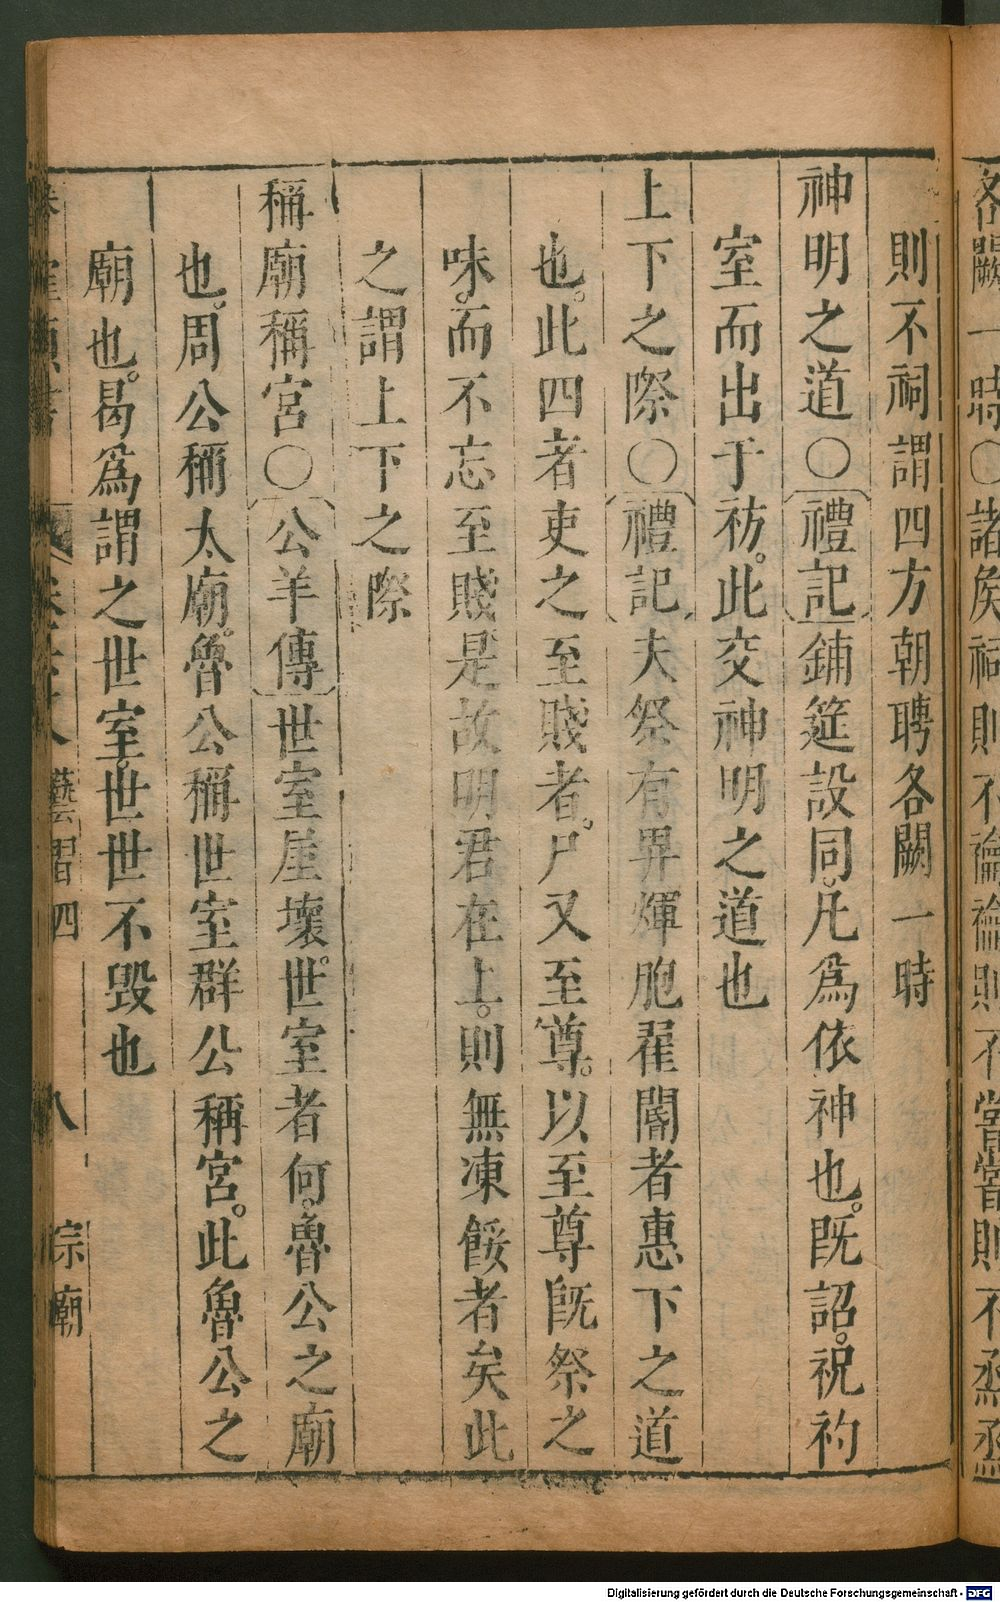 各闕一時○諸矦祠則不禴禴則不嘗嘗則不烝烝
則不祠謂四方朝聘各闕一時
神明之道○禮記鋪筵設同。凡爲依神也。既詔。祝祊
室而出于祊。此交神明之道也
上下之際○禮記夫祭有畀煇胞翟閽者惠下之道
也。此四者吏之至賤者。尸又至尊。以至尊既祭之
味。而不忘至賤是故明君在上。則無凍餒者矣此
之謂上下之際
稱廟稱宮○公羊傳世室屋壞。世室者何。魯公之廟
也。周公稱太廟。魯公稱世室群公稱宮。此魯公之
廟也。曷爲謂之世室。世世不毀也
藝習四
八
宗廟
Digitalisierung gefördert durch die Deutsche Forschungsgemeinschaft - DFG